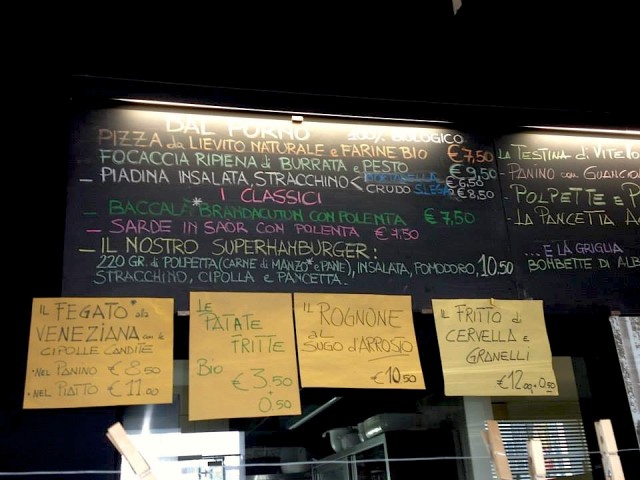 DAL FORNO 100% BIOLOGICO
PIZZA da LIEVITO NATURALE e FARINE BIO € 7,50
FOCACCIA RIPIENA di BURRATA e PESTO € 9,50
_ PIADINA INSALATA, STRACCHINO < € 6,50
CRUDO € 8,50
I CLASSICI
_ BACCALA* BRANDACUTUN CON POLENTA € 7,50
_ SARDE IN SAOR CON POLENTA € 7,50
_ IL NOSTRO SUPERHAMBURGER:
220 GR. di POLPETTA (CARNE di MANZO* e PANE), INSALATA, POMODORO, 10,50
STRACCHINO, CIPOLLA e PANCETTA.
LA TESTINA di VITE
- PANINO con GUANCI
- POLPETTE e P
- LA PANCETTA A
...E LA GRIGLIA
BOMBETTE DI ALB
IL FEGATO* alla
VENEZIANA con le
CIPOLLE CANDITE
• NEL PANINO € 8,50
• NEL PIATTO € 11,00
LE
PATATE
FRITTE
Bio
€ 3,50
+
0,50
IL ROGNONE
AL
SUGO d'ARROSTO
€ 10,50
IL FRITTO di
CERVELLA e
GRANELLI
€ 12,00 + 0,50